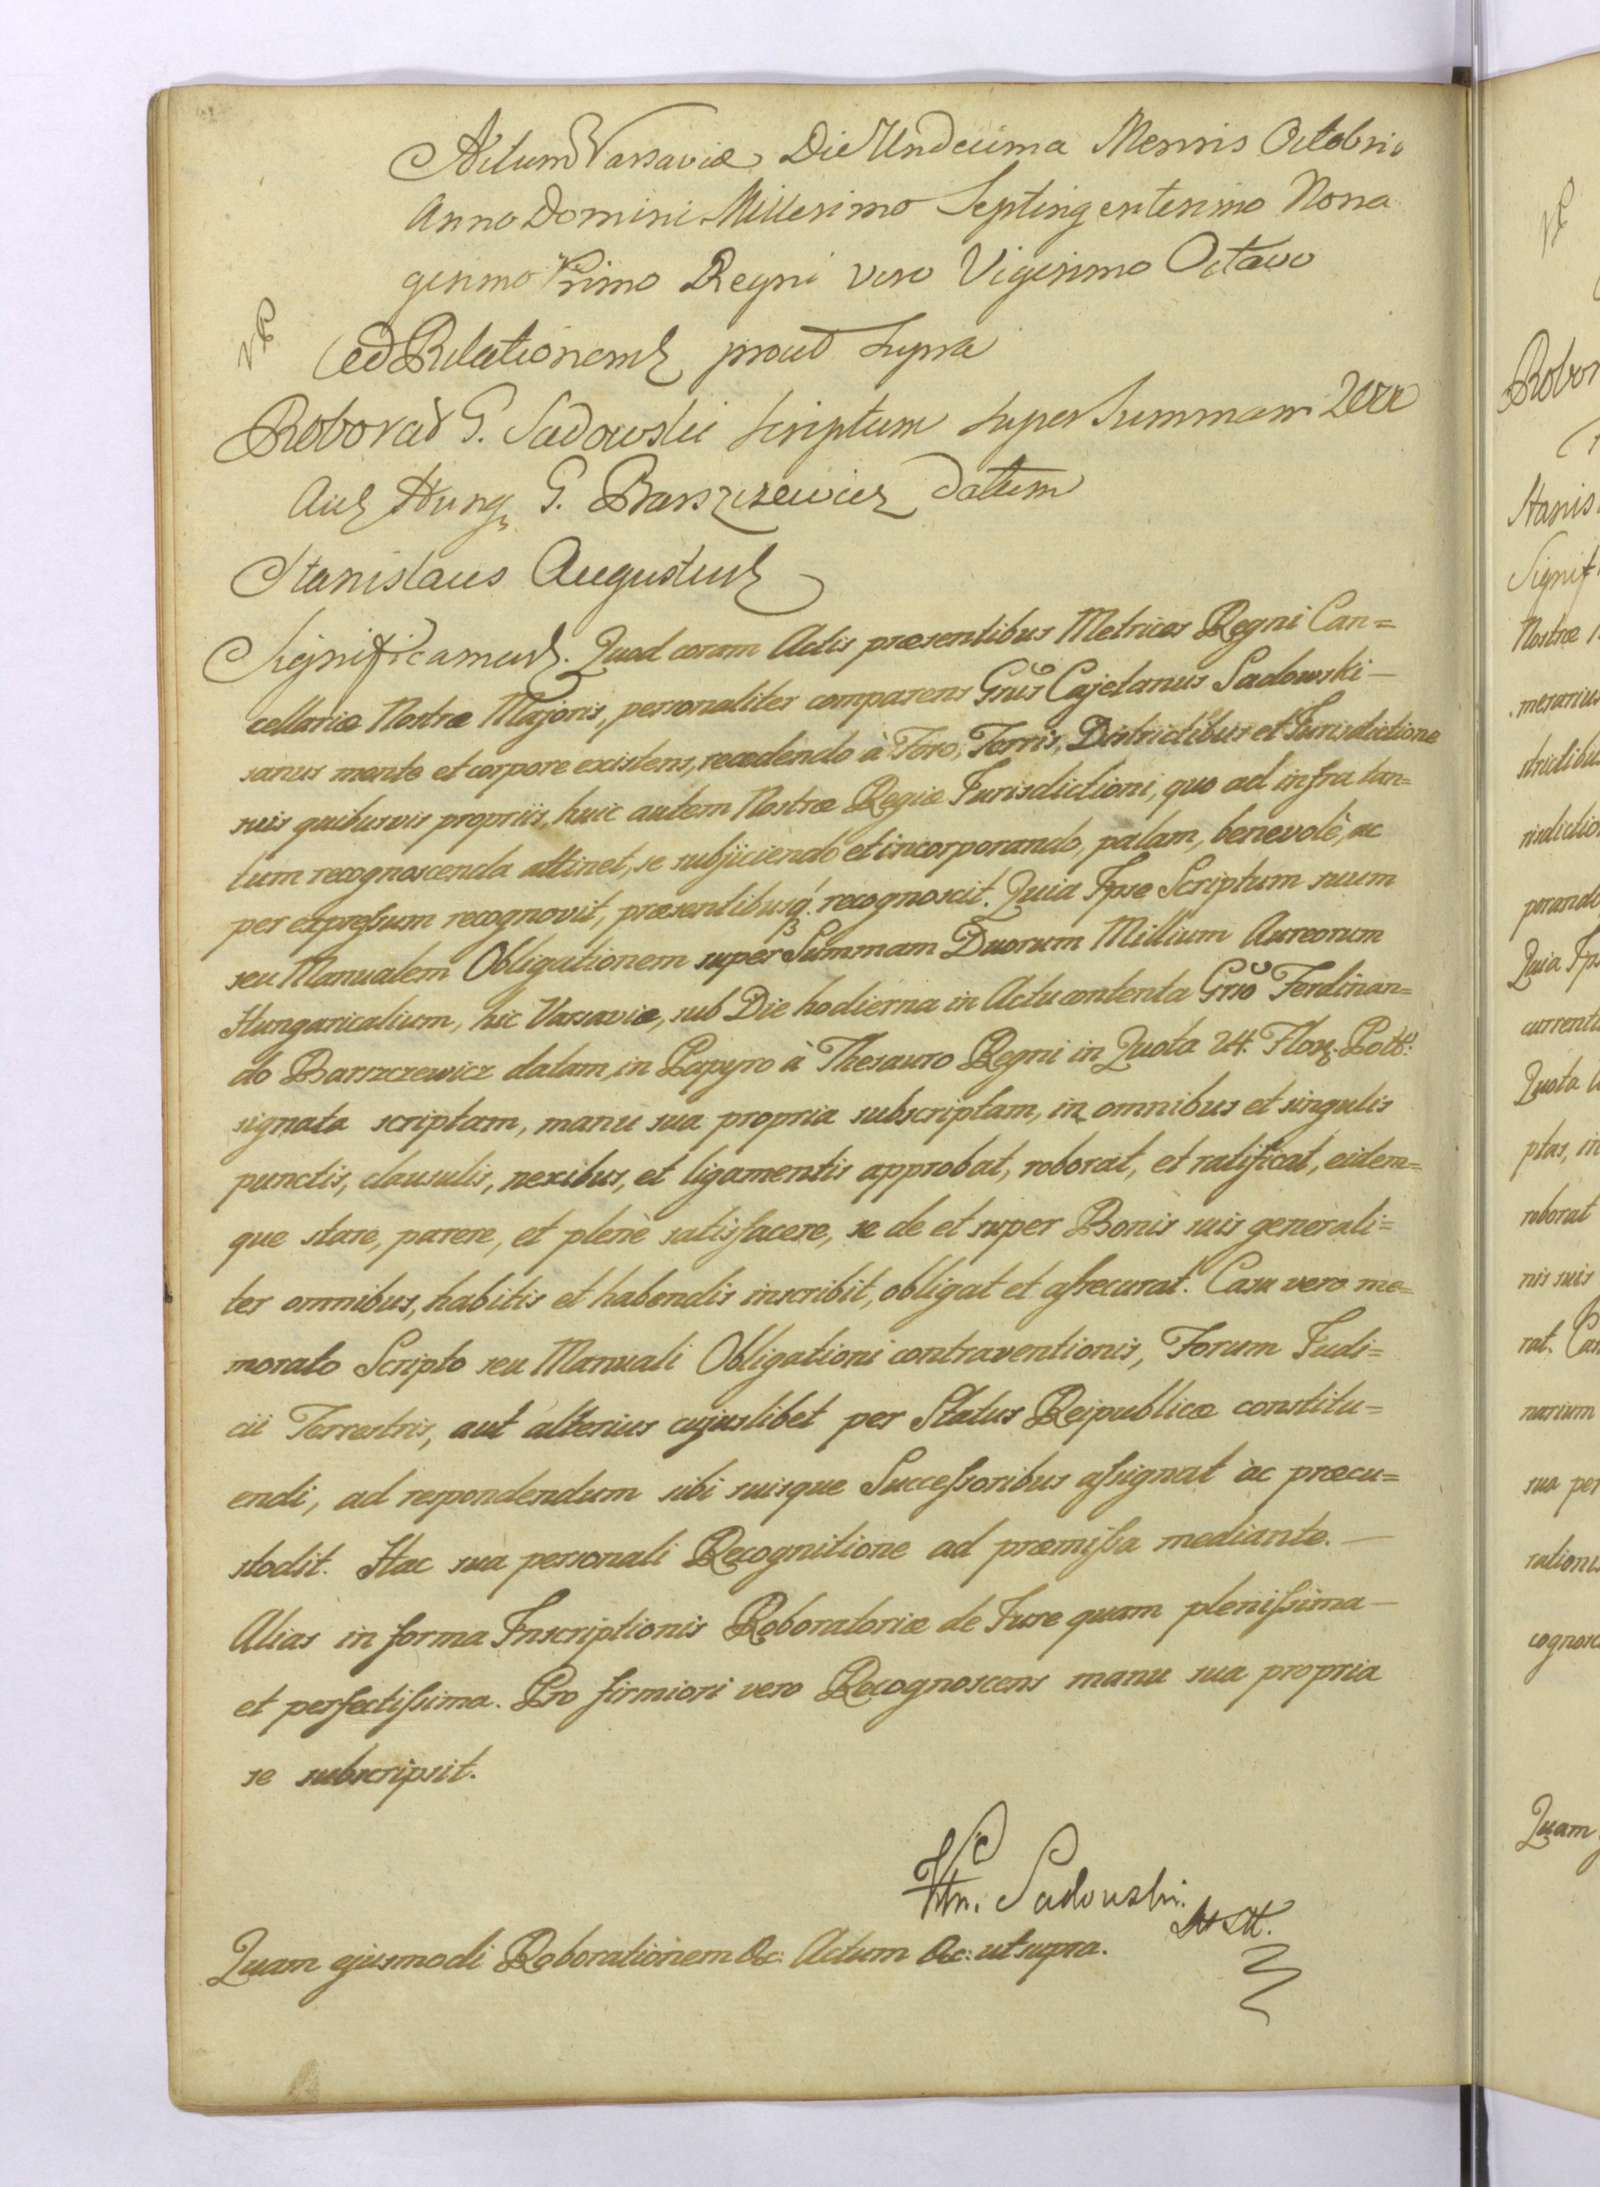 Actum Varsaviæ Die Undecima Mensis Octobris
Anno Domini Millesimo Septingentesimo Nona
gesimo Primo Regni vero Vigesimo Octavo
ad Relationem prout supra
Roborat G. Sadowski scriptum super summam 2000
Aur Hung, G. Barszczewicz datum
Stanislaus Augustus
Significamus. Quod coram Actis præsentibus Metrices Regni Can=
cellariæ Nostræ Majoris, personaliter comparens Gnus Cajetanus Sadowski —
sanus mente et corpore existens, recedendo à Foro, Terris, Districtibus et Jurisdictione
suis quibusvis propriis, huic autem Nostræ Regiæ Jurisdictioni, quo ad infra tan=
tum recognoscenda attinet, se subjiciendo et incorporando, palam, benevolè, ac
per expressum recognovit, præsentibusq. recognoscit. Quia Ipse Scriptum suum
seu Manualem Obligationem super Summam Duorum Millium Aureorum
Hungaricalium, hic Varsaviæ, sub Die hodierna in Actu contenta Gnso Ferdinan=
do Barszczewicz datam, in Papyro à Thesauro Regni in Quota 24. Flor. Poll:
signata scriptam, manu sua propria subscriptam, in omnibus et singulis
punctis, clausulis, nexibus, et ligamentis approbat, roborat, et ratificat, eidem=
que stare, parere, et plenè satisfacere, se de et super Bonis suis generali=
ter omnibus, habitis et habendis inscribit, obligat et assecurat. Casu vero me=
morato Scripto seu Manuali Obligationi contraventionis, Forum Judi=
cii Terrestris, aut alterius cujuslibet per Status Reipublicæ constitu=
endi, ad respondendum sibi suisque Successoribus assignat ac præcu=
stodit. Hac sua personali Recognitione ad præmissa mediante. —
Alias in forma Inscriptionis Roboratoriæ de Jure quam plenissima —
et perfectissima. Pro firmiori vero Recognoscens manu sua propria
se subscripsit.
Sadowski.
Quam ejusmodi Roborationem &c: Actum &c: ut supra.
Stanis
Signif
Nostræ
merarius
strictibus
Quota
ptas, in
roborat
nis suis
rat. Cas
sua per
Quam